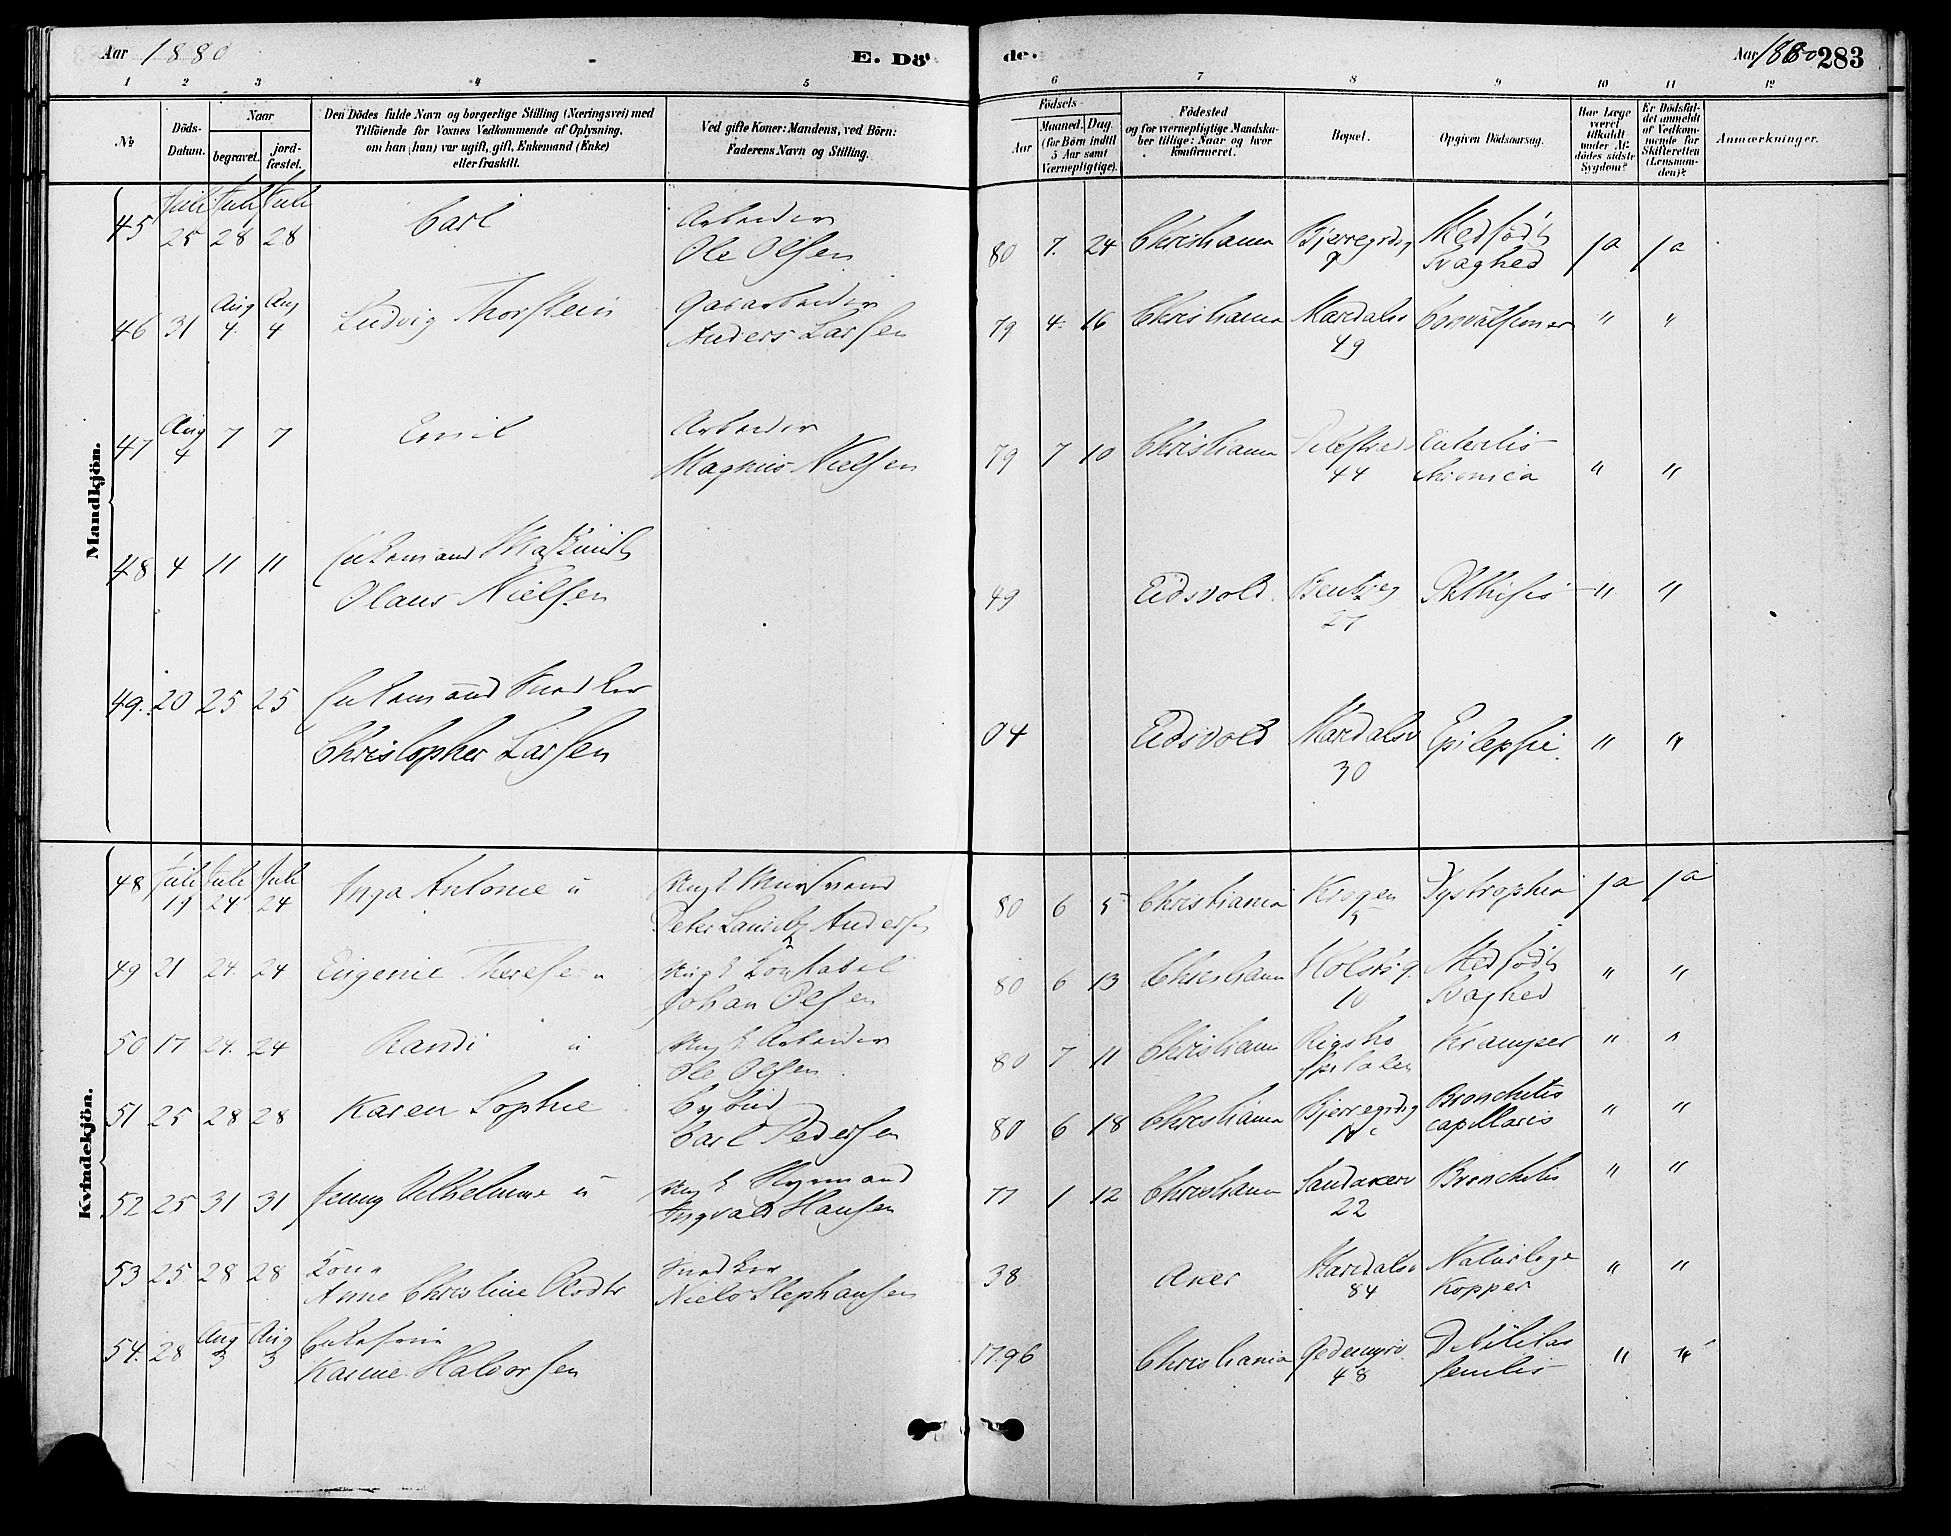 Aar 1880
E. Dö-
de.
Aar 1880 283
1 2 3 4 5 6 7 8 9 10 11 12
№
Döds-Datum.
Naar
begravet.
jord-fæstet.
Den Dödes fulde Navn og borgerlige Stilling (Næringsvei) med
Tilföiende for Voxnes Vedkommende af Oplysning,
om han (hun) var ugift, gift, Enkemand (Enke)
eller fraskilt.
Ved gifte Koner: Mandens, ved Börn:
Faderens Navn og Stilling.
Födsels-
Aar
Maaned. Dag.
(for Börn indtil
5 Aar samt
Værnepligtige).
Födested
og for værnepligtige Mandska-
ber tillige: Naar og hvor
konfirmeret.
Bopæl.
Opgiven Dödsaarsag.
Har Læge
været
tilkaldt
under Af-
dödes sidste
Sygdom?
Er Dödsfal-
det anmeldt
af Vedkom-
mende for
Skifteretten
(Lensman-
den)?
Anmærkninger.
Mandkjön.
45 Juli 25 Juli 28 Juli 28 Carl Arbeider
Ole Olsen 80 7. 24 Christiania Bjerregdsg 9 Medfødt
Svaghed ja ja
46 31 Aug 4. Aug 4 Ludvig Thorstein Gasarbeider
Anders Larsen 79 4. 16 Christiania Maridalsv 49 Convulsioner " "
47 Aug 4 7 7 Emil Arbeider
Magnus Nielsen 79 7 10 Christiania 44 Enteritis
kronica " "
48 4 11 11 Enkemand Maskinist
Olaus Nielsen 49 Eidsvold 27 Phthisis " "
49. 20 25 25 Enkemand Snedker
Christopher Larsen 04 Eidsvold Maridalsv 30 Epilepsie. " "
Kvindekjön.
48 Juli 19 Juli 24 Juli 24 Inga Antonie u Ungk MurSvend
Peter Lauritz Andersen 80 6 5 Christiania Krogen 5 Dystrophia ja ja
49 21 24. 24 Eugenie Therese u Ungk Konstabel
Johan Olsen 80 6 13 Christiania 10 Medfødt
Svaghed " "
50 17 24. 24 Randi u Ungk Arbeider
Ole Olsen 80 7 11 Christiania Rigsho
spitalen Kramper " "
51 25 28 28 Karen Sophie Bybud
Carl Pedersen 80 6 18 Christiania Bjerregdsg Bronchitis
capillaris " "
52 25 31 31 Jenny Vilhelmine u Ungk Styrmand
Ingvald Hansen 77 1 12 Christiania Sandakerv 22 Bronchitis " "
53 25 28 28 Kone
Anne Christine Snedker
Niels Stephansen 38 Aker Maridalsv 84 Naturlige
Kopper " "
54. 28 Aug 3 Aug 3 Enkefrue
Karine Halvorsen 1796 Christiania Gedemyrv 48 Debilitas
senilis " "